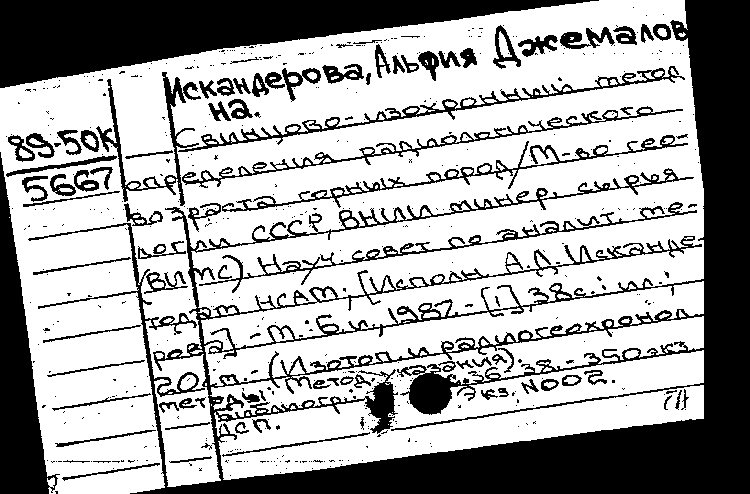 Искандерова, Альфия Джемалов
на.
89-50К
5667
Свинцово-изохронный метод
определения радиологического
возраста горных пород/М-во гео-
логии СССР, ВНИИ минер. сырья
(ВИМС). Науч. совет по аналит. ме-
тодам НСАМ; [Исполн. А.Д. Исканде-
рова] - М.: Б.и., 1987. - [1], 38 с.: ил.;
20 см. - (Изотоп. и радиогеохронол.
методы: Метод. указания).
Библиогр.: с. 36-38. - 350 экз.
ДСП. Экз. N002.